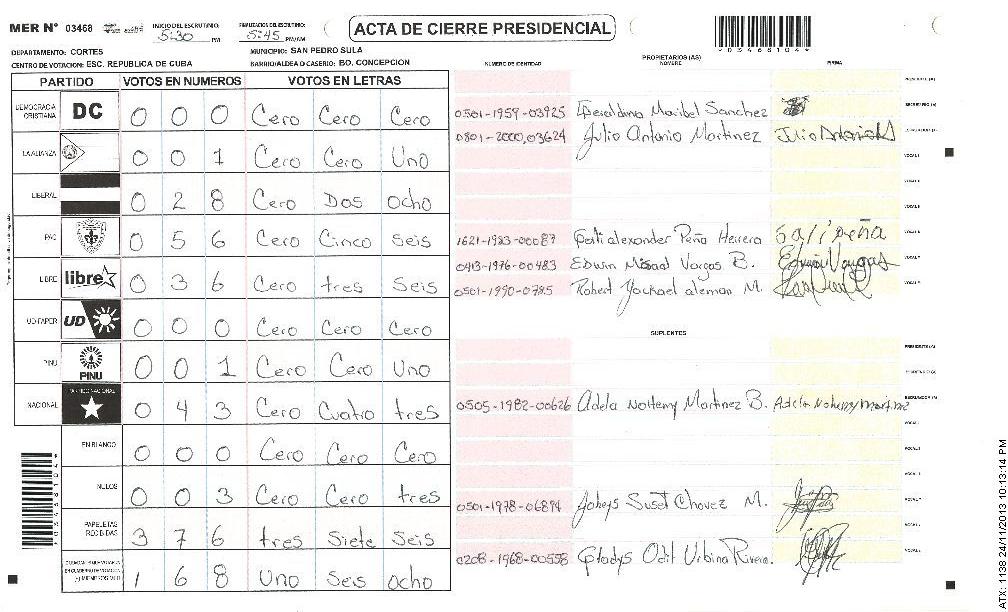 MER Nº 03468
INICIO DEL ESCRUTINIO: 5:30 PM
FINALIZACION DEL ESCRUTINIO: 5:45 PM/AM
ACTA DE CIERRE PRESIDENCIAL
03468104
DEPARTAMENTO: CORTES
MUNICIPIO: SAN PEDRO SULA
CENTRO DE VOTACION: ESC. REPUBLICA DE CUBA
BARRIO/ALDEA O CASERIO: BO. CONCEPCION
NÚMERO DE IDENTIDAD
PROPIETARIOS (AS)
NOMBRE
FIRMA
PARTIDO VOTOS EN NUMEROS VOTOS EN LETRAS
DEMOCRACIA CRISTIANA DC 0 0 0 Cero Cero Cero
LA ALIANZA 0 0 1 Cero Cero Uno
LIBERAL 0 2 8 Cero Dos ocho
PAC 0 5 6 Cero Cinco seis
LIBRE libre 0 3 6 Cero tres Seis
UD FAPER UD 0 0 0 Cero Cero Cero
PINU PINU 0 0 1 Cero Cero Uno
NACIONAL PARTIDO NACIONAL 0 4 3 Cero Cuatro tres
EN BLANCO 0 0 0 Cero Cero Cero
NULOS 0 0 3 Cero Cero tres
PAPELETAS RECIBIDAS 3 7 6 tres Siete Seis
1 6 8 Uno Seis ocho
0501-1959-03925 Maribel Sanchez
0801-2000,03624 Julio Antonio Martinez
1621-1983-00087 alexander Peña Herrera
0413-1976-00483 Edwin Misael Vargas B. Edwin Vargas
0501-1990-0785 Robert Yackael aleman M.
SUPLENTES
0505-1982-00626 Adela Nohemy Martinez B. Adela Nohemy Martinez
0501-1978-06894 Joheys Suset Chavez M.
0208-1968-00558 Gladys Odit Urbina Rivera.
ATX: 1138 24/11/2013 10:13:14 PM